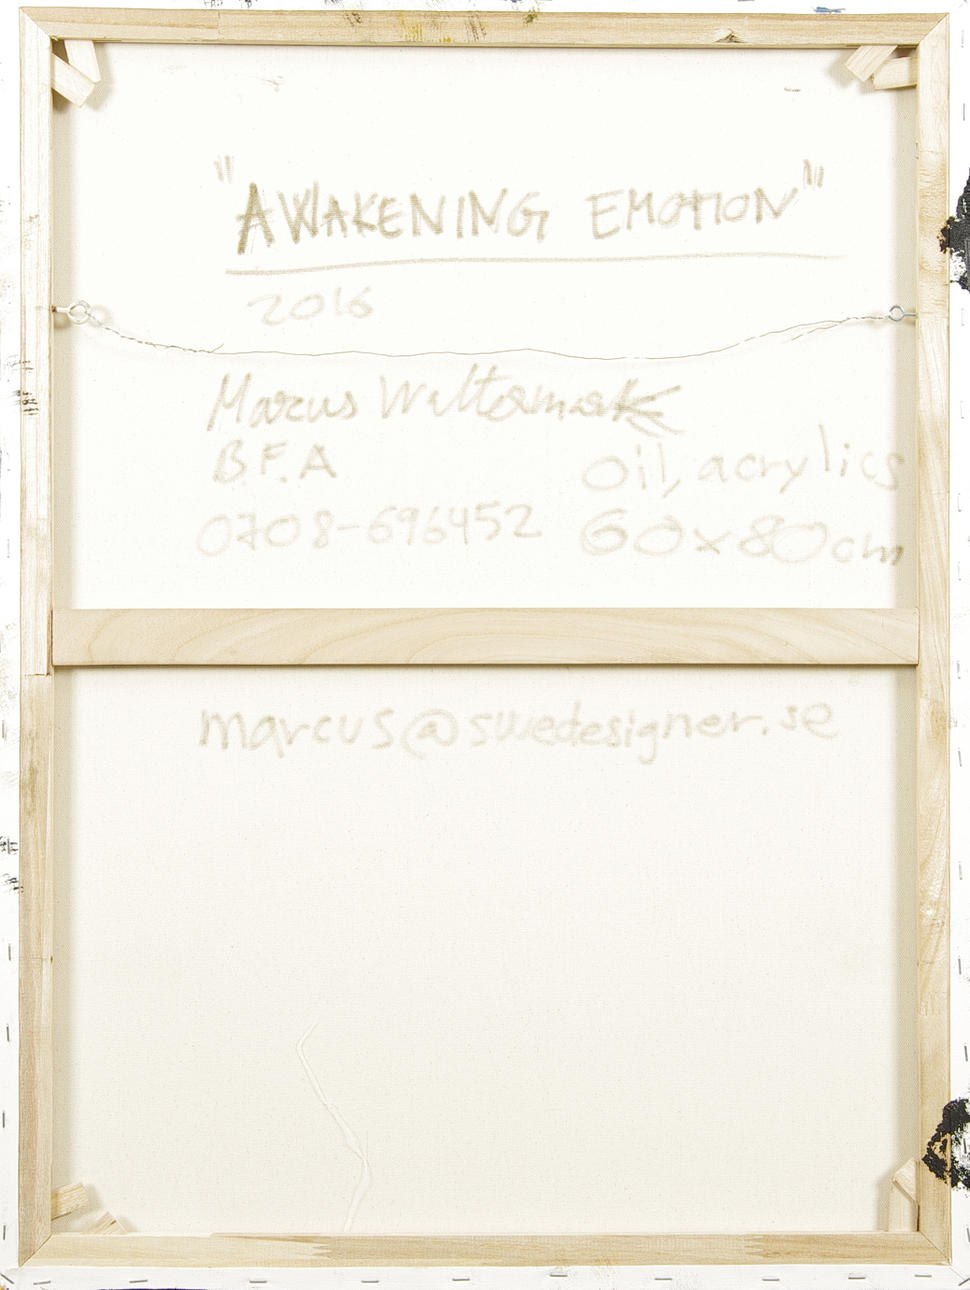 "AWAKENING EMOTION"
2016
Marcus
B.F.A
Oil, acrylics
0708-696452
60x80cm
marcus@swedesigner.se